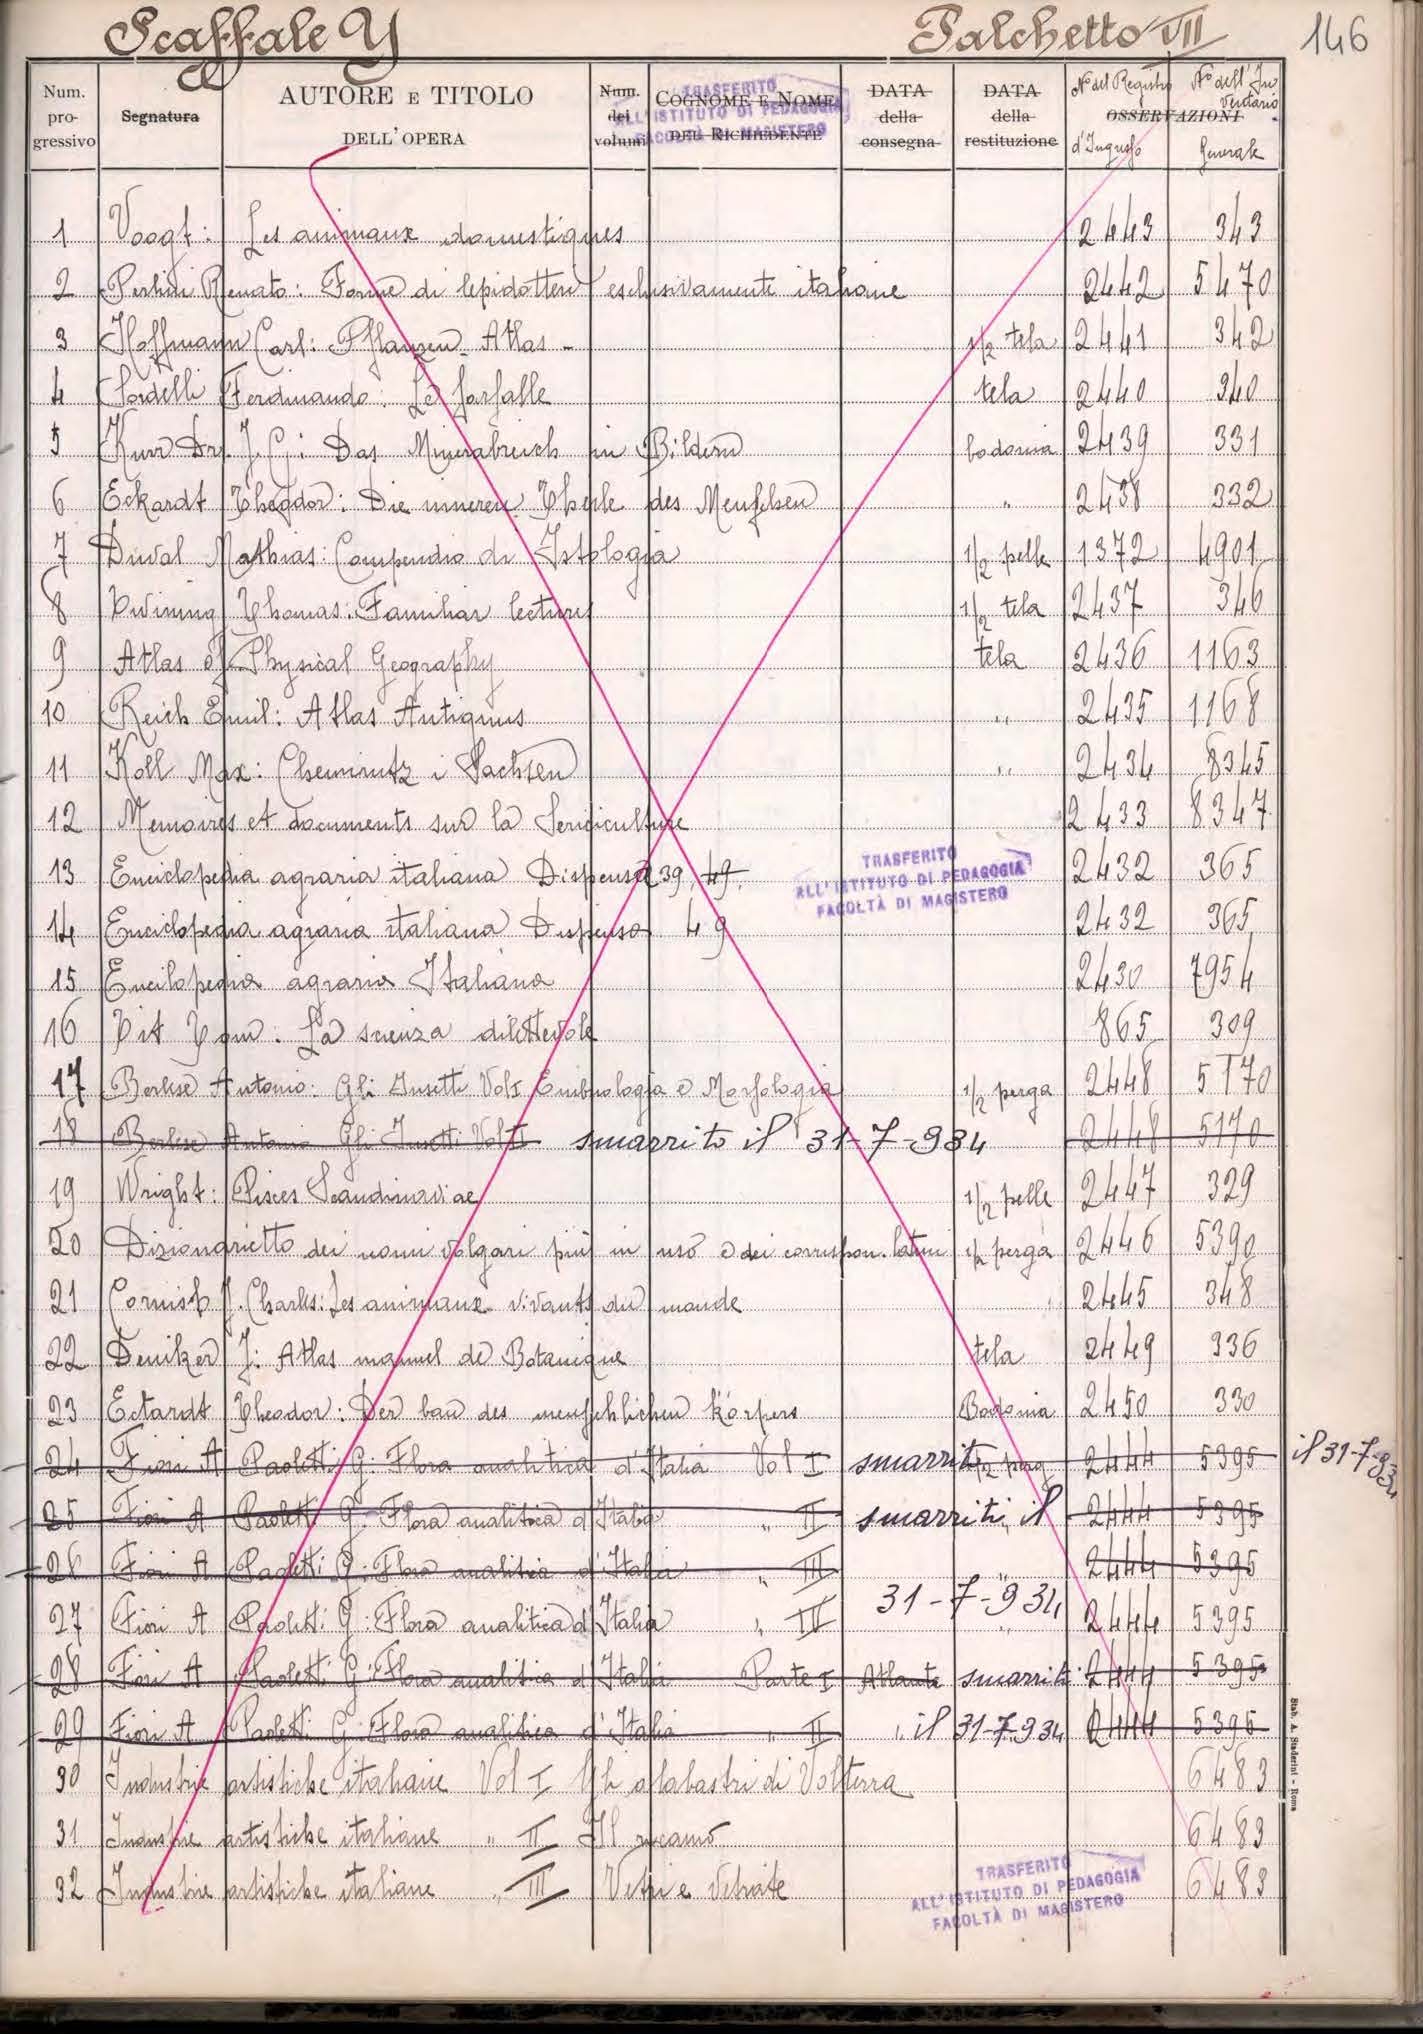 Scaffale Y Palchetto VII 146
Num. progressivo Segnatura AUTORE E TITOLO DELL'OPERA Num. dei volumi COGNOME E NOME DEL RICHIEDENTE DATA della consegna DATA della restituzione N° del Registro d'Ingresso OSSERVAZIONI N° dell'Inventario Generale
TRASFERITO
ALL'ISTITUTO DI PEDAGOGIA
FACOLTÀ DI MAGISTERO
1 Voogt: Les animaux domestiques 2443 343
2 Perlini Renato: Forme di lepidotteri esclusivamente italiane 2442 5470
3 Hoffmann Carl: Pflanzen - Atlas - 1/2 tela 2441 342
4 Sordelli Ferdinando: Le farfalle tela 2440 340
5 Kurr Dr. J. G: Das Mineralreich in Bildern bodonia 2439 331
6 Eckardt Theodor: Die inneren Theile des Menschen " 2438 332
7 Duval Mathias: Compendio di Istologia 1/2 pelle 1372 4901
8 Twining Thomas: Familiar lectures 1/2 tela 2437 346
9 Atlas of Physical Geography tela 2436 1163
10 Reich Emil: Atlas Antiquus " 2435 1168
11 Koll Max: Chemnitz i Sachsen " 2434 8345
12 Memoires et documents sur la Sericiculture 2433 8347
13 Enciclopedia agraria italiana Dispensa 39, 49, 2432 365
TRASFERITO
ALL'ISTITUTO DI PEDAGOGIA
FACOLTÀ DI MAGISTERO
14 Enciclopedia agraria italiana Dispensa 49 2432 365
15 Encilopedia agraria Italiana 2430 7954
16 Tit Tom: La scienza dilettevole 865 309
17 Berlese Antonio: Gli Insetti Vol I Embriologia e Morfologia 1/2 perga 2448 5170
18 Berlese Antonio Gli Insetti Vol II smarrito il 31-7-934 2448 5170
19 Wright: Pisces Scandinaviae 1/2 pelle 2447 329
20 Dizionarietto dei nomi volgari più in uso e dei correspon. latini 1/2 perga 2446 5390
21 Cornish J. Charles: Les animaux vivants du monde 2445 348
22 Deniker J: Atlas manuel de Botanique tela 2449 336
23 Ectardt Theodor: Der bau des menschlichen körpers Bodonia 2450 330
24 Fiori A Paoletti G: Flora analitica d'Italia Vol I smarrito 1/2 perg 2444 5395 il 31-7-934
25 Fiori A Paoletti G: Flora analitica d'Italia " II smarriti il 2444 5395
26 Fiori A Paoletti G: Flora analitica d'Italia " III 2444 5395
31-7-934
27 Fiori A Paoletti G: Flora analitica d'Italia " IV " 2444 5395
28 Fiori A Paoletti G: Flora analitica d'Italia Parte I Atlante smarriti 2444 5395
29 Fiori A Paoletti G: Flora analitica d'Italia " II " il 31-7-934 2444 5395
30 Industrie artistiche italiane Vol I Gli alabastri di Volterra 6483
31 Industrie artistiche italiane " II Il ricamo 6483
32 Industrie artistiche italiane " III Vetri e Vetrate 6483
TRASFERITO
ALL'ISTITUTO DI PEDAGOGIA
FACOLTÀ DI MAGISTERO
Stab. A. Staderini - Roma